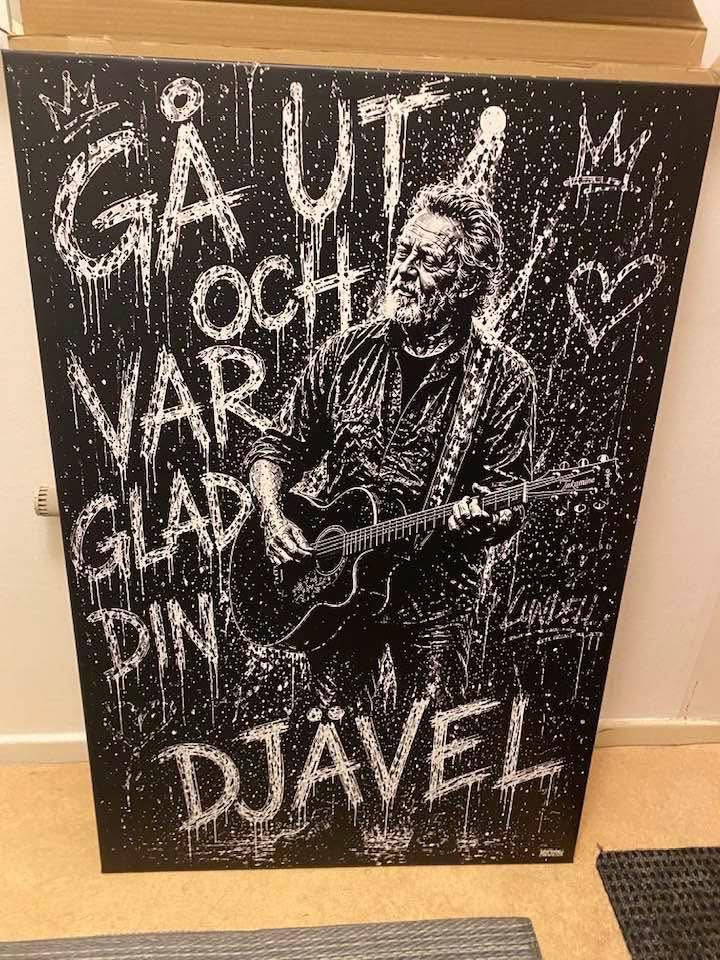 GÅ UT
OCH
VAR
GLAD
DIN
DJÄVEL
Takamine
LUNDELL